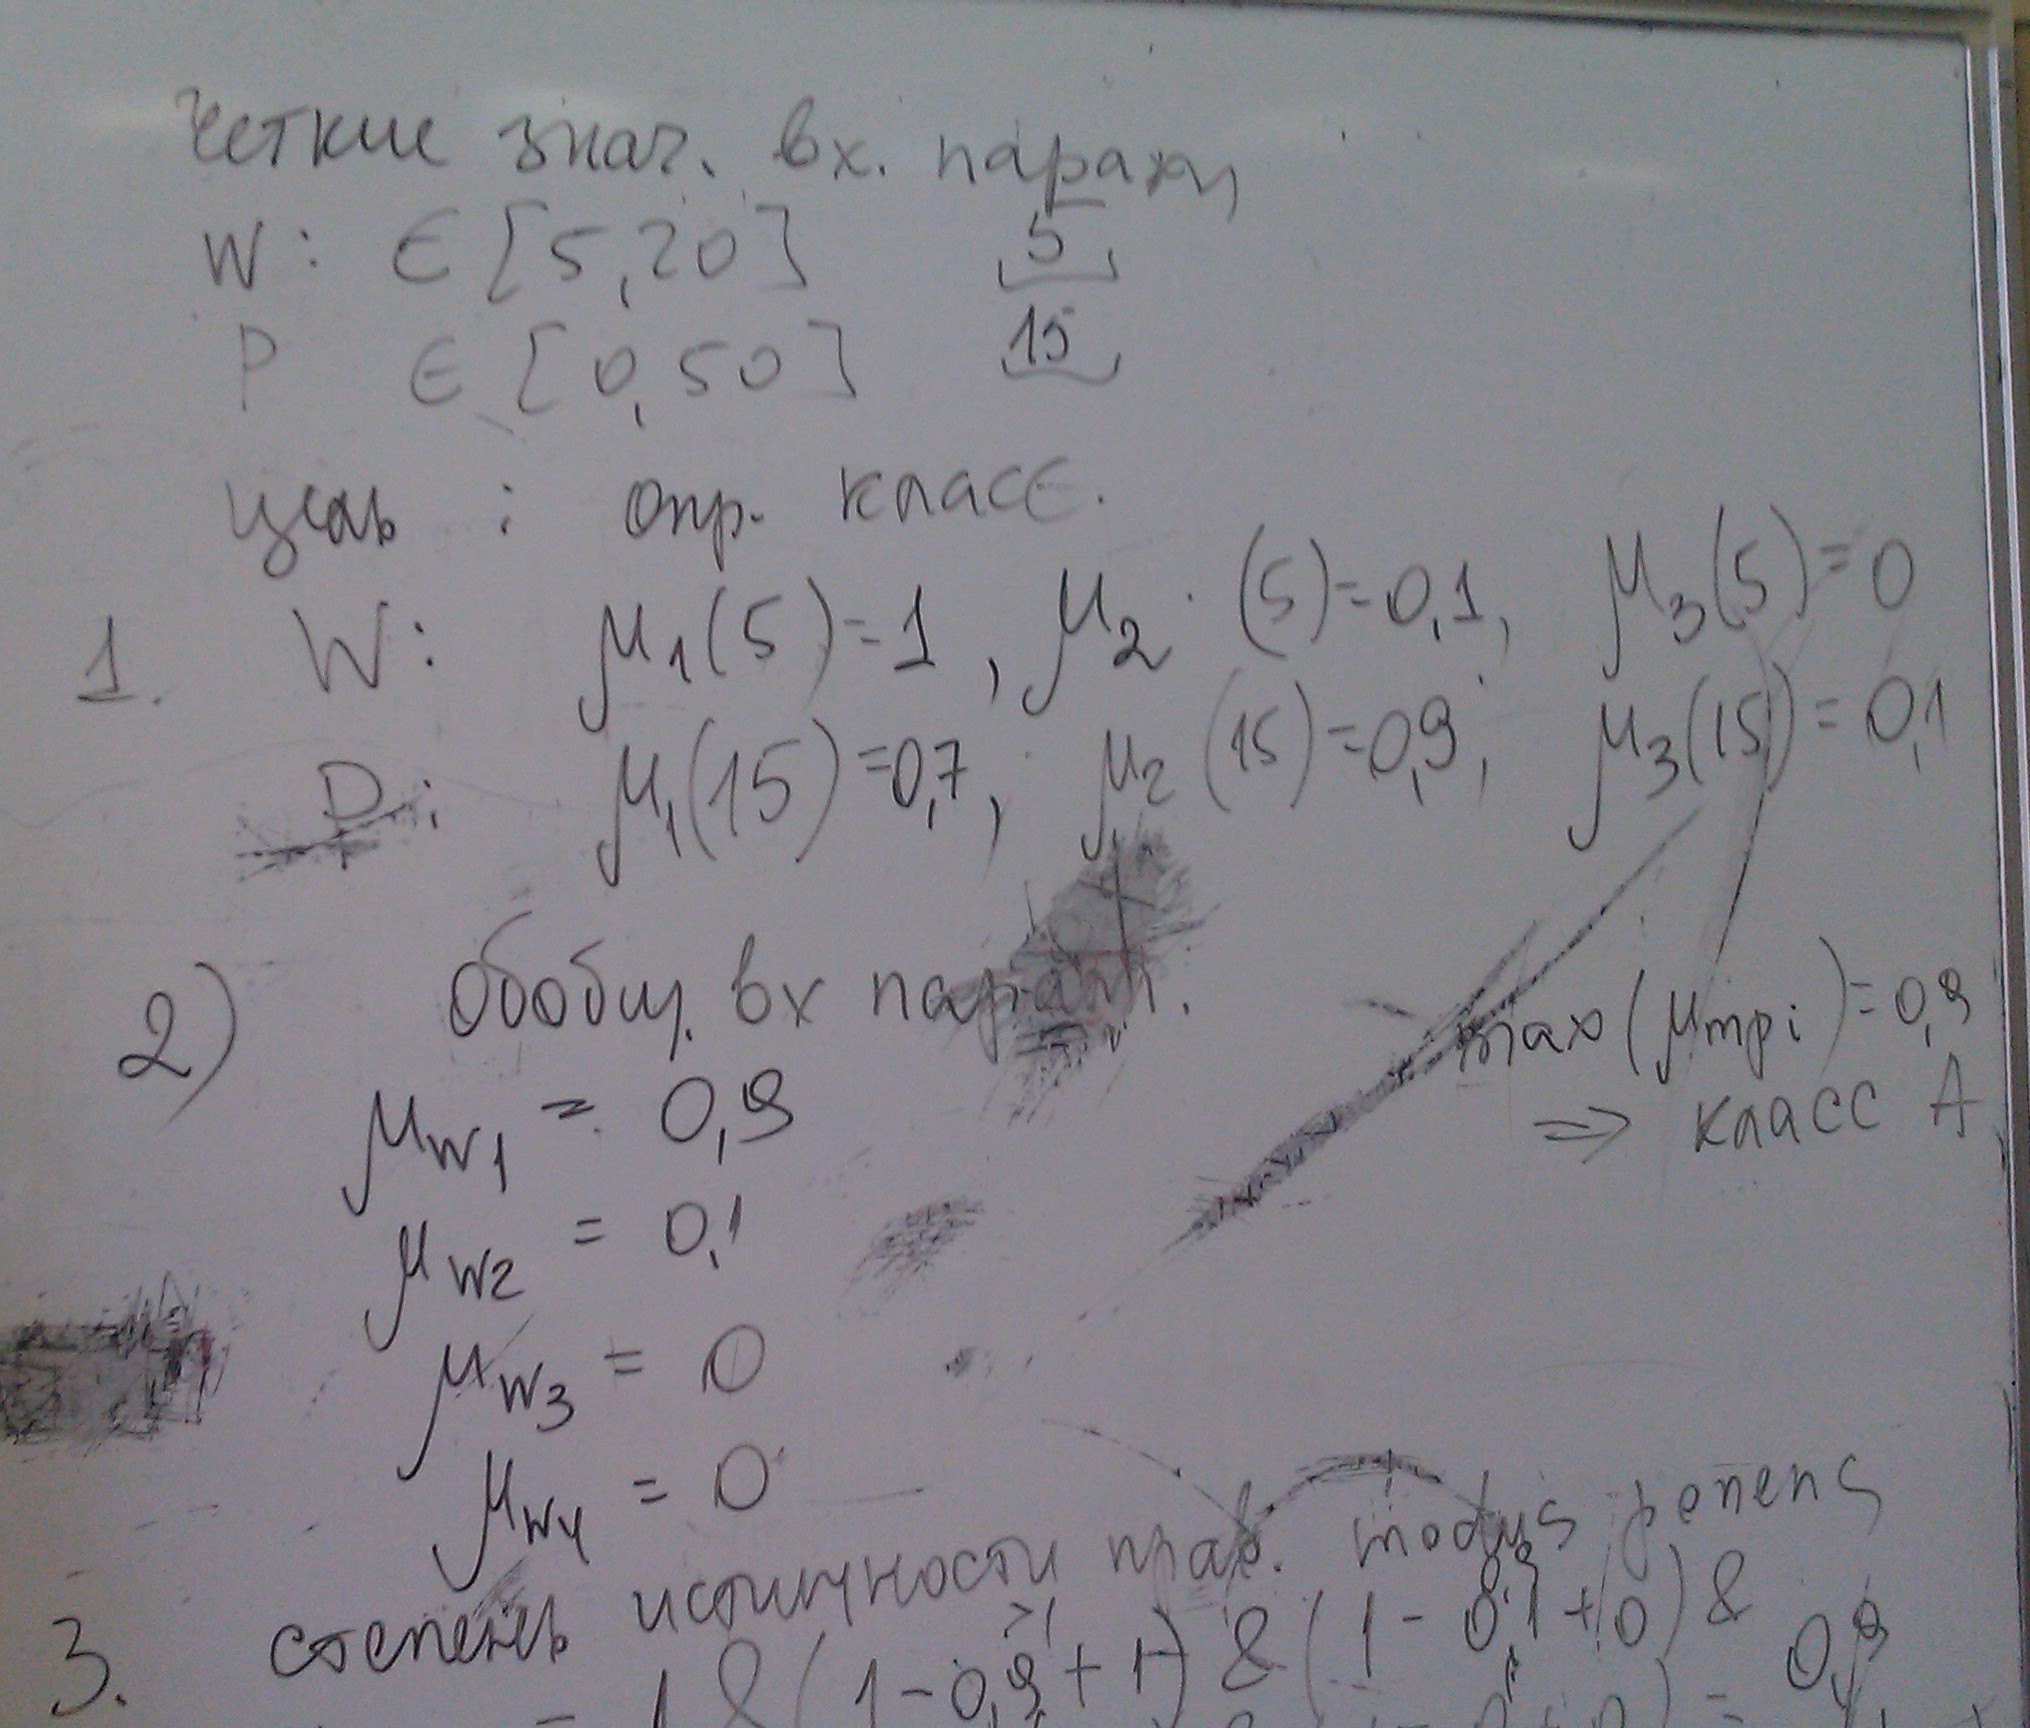 четкие знач. вх. парам
W: ∈ [5,20] 5
P ∈ [0,50] 15
цель : опр. класс.
1. W: μ1(5)=1, μ2 (5)=0,1, μ3(5)=0
P: μ1(15)=0,7, μ2(15)=0,9, μ3(15)=0,1
2) Обобщ. вх парам.
μw1 = 0,9
μw2 = 0,1
μw3 = 0
μw4 = 0
max(μmpi)=0,9
⇒ класс A
3. степень истинности прав. modus ponens
= 1 & (1-0,9+1) & (1-0,1+0) &
= 0,9